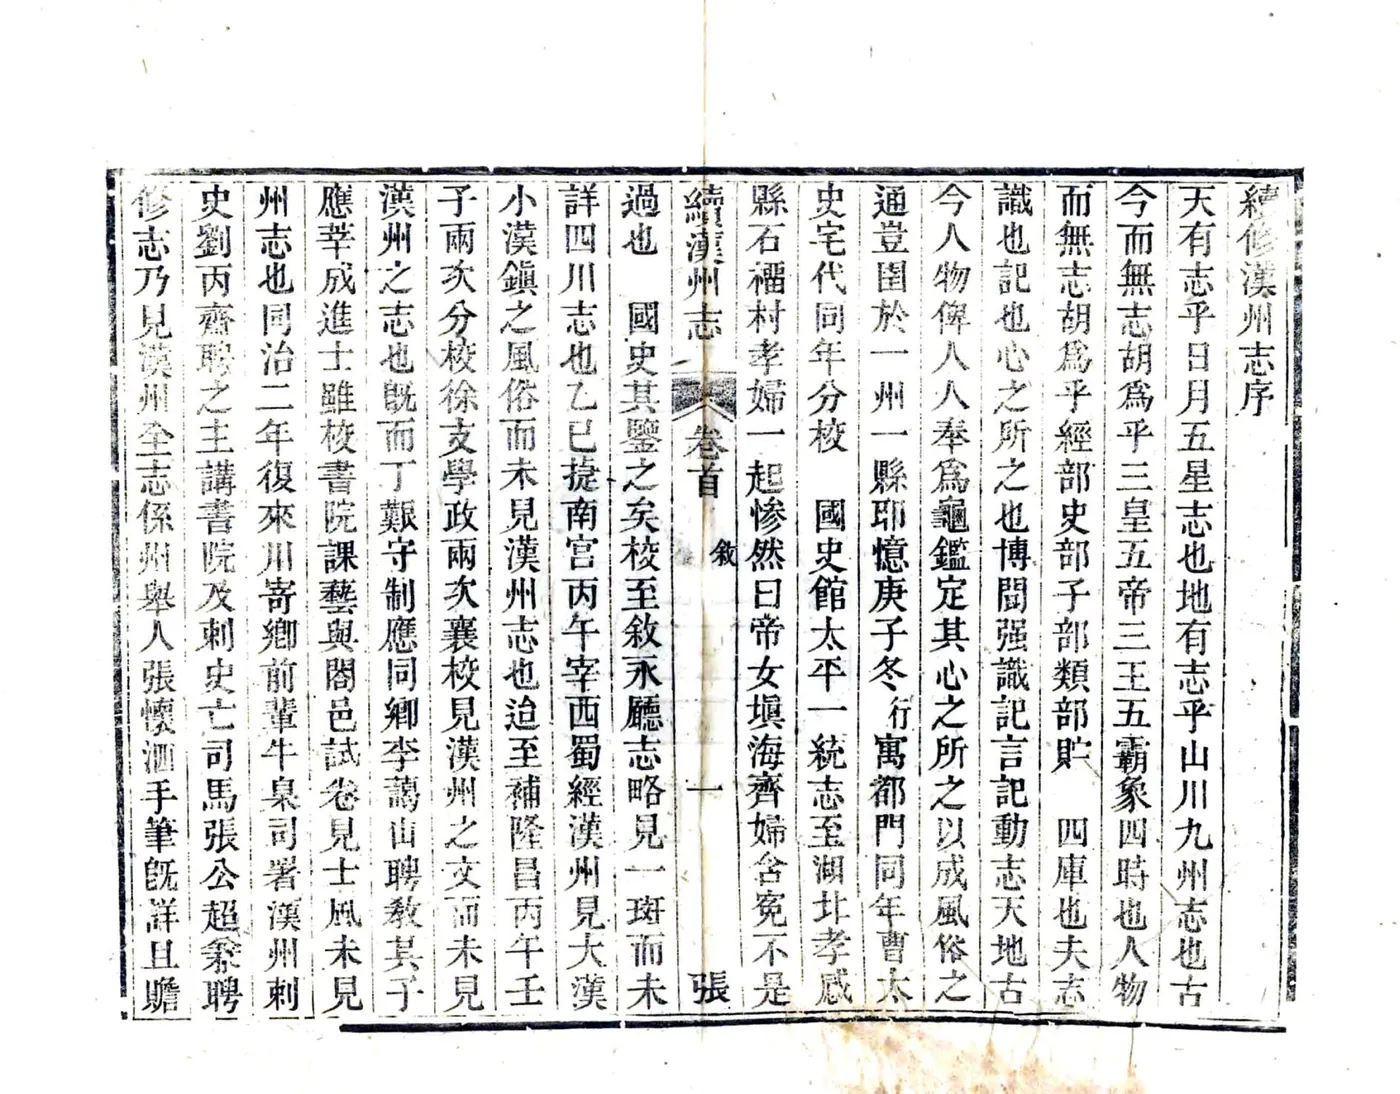 續修漢州志序
天有志乎日月五星志也地有志乎山川九州志也古
今而無志胡爲乎三皇五帝三王五霸象四時也人物
而無志胡爲乎經部史部子部類部貯　四庫也夫志
識也記也心之所之也博聞强識記言記動志天地古
今人物俾人人奉爲龜鑑定其心之所之以成風俗之
通豈囿於一州一縣耶憶庚子冬行寓都門同年曹太
史宅代同年分校　國史館太平一統志至湖北孝感
縣石磂村孝婦一起慘然曰帝女塡海齊婦含冤不是
續漢州志　卷首　敘　一　張
過也　國史其鑒之矣校至敘永廳志略見一斑而未
詳四川志也乙巳捷南宫丙午宰西蜀經漢州見大漢
小漢鎭之風俗而未見漢州志也迨至補隆昌丙午壬
子兩次分校徐支學政兩次襄校見漢州之文而未見
漢州之志也旣而丁艱守制應同鄉李藹山聘敎其子
應莘成進士雖校書院課藝與閤邑試卷見士風未見
州志也同治二年復來川寄鄉前輩牛臬司署漢州刺
史劉丙齋聘之主講書院及刺史亡司馬張公超纂聘
修志乃見漢州全志係州舉人張懷泗手筆旣詳且贍